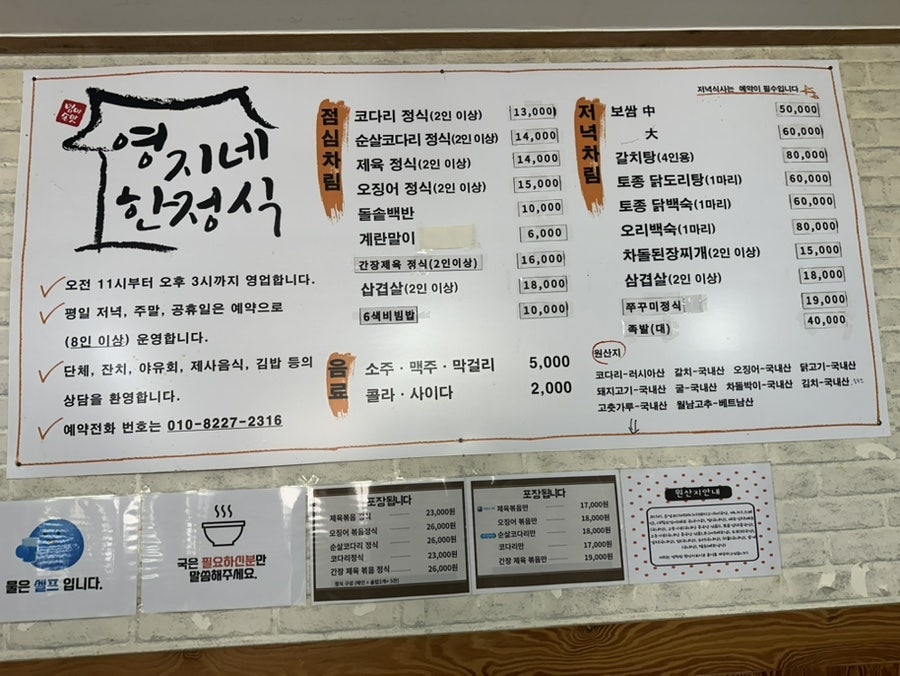 영지네
한정식
오전 11시부터 오후 3시까지 영업합니다.
평일 저녁, 주말, 공휴일은 예약으로
(8인 이상) 운영합니다.
단체, 잔치, 야유회, 제사음식, 김밥 등의
상담을 환영합니다.
예약전화 번호는 010-8227-2316
점심차림
코다리 정식(2인 이상) 13,000
순살코다리 정식(2인 이상) 14,000
제육 정식(2인 이상) 14,000
오징어 정식(2인 이상) 15,000
돌솥백반 10,000
계란말이 6,000
간장제육 정식(2인이상) 16,000
삽겹살(2인 이상) 18,000
6색비빔밥 10,000
음료
소주 · 맥주 · 막걸리 5,000
콜라 · 사이다 2,000
저녁식사는 예약이 필수입니다
저녁차림
보쌈 中 50,000
大 60,000
갈치탕(4인용) 80,000
토종 닭도리탕(1마리) 60,000
토종 닭백숙(1마리) 60,000
오리백숙(1마리) 80,000
차돌된장찌개(2인 이상) 15,000
삼겹살(2인 이상) 18,000
쭈꾸미정식 19,000
족발(대) 40,000
원산지
코다리-러시아산 갈치-국내산 오징어-국내산 닭고기-국내산
돼지고기-국내산 굴-국내산 차돌박이-국내산 김치-국내산
고춧가루-국내산 월남고추-베트남산
물은 셀프 입니다.
국은 필요하신분만
말씀해주세요.
포장됩니다
제육볶음 정식 23,000원
오징어 볶음정식 26,000원
순살코다리 정식 26,000원
코다리정식 23,000원
간장 제육 볶음 정식 26,000원
포장됩니다
제육볶음만 17,000원
오징어 볶음만 18,000원
순살코다리만 18,000원
코다리만 17,000원
간장 제육 볶음만 19,000원
원산지안내